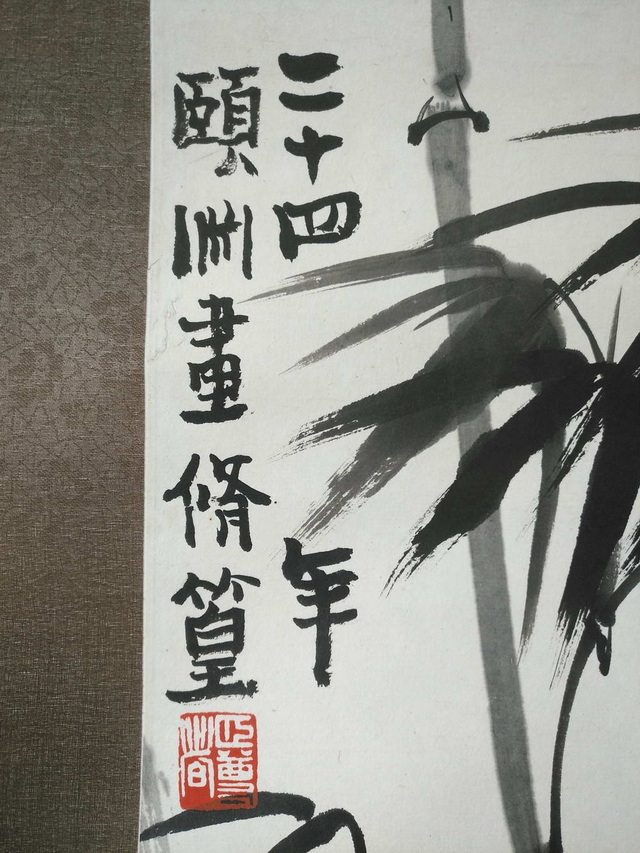 二十四年
頤淵畫脩篁